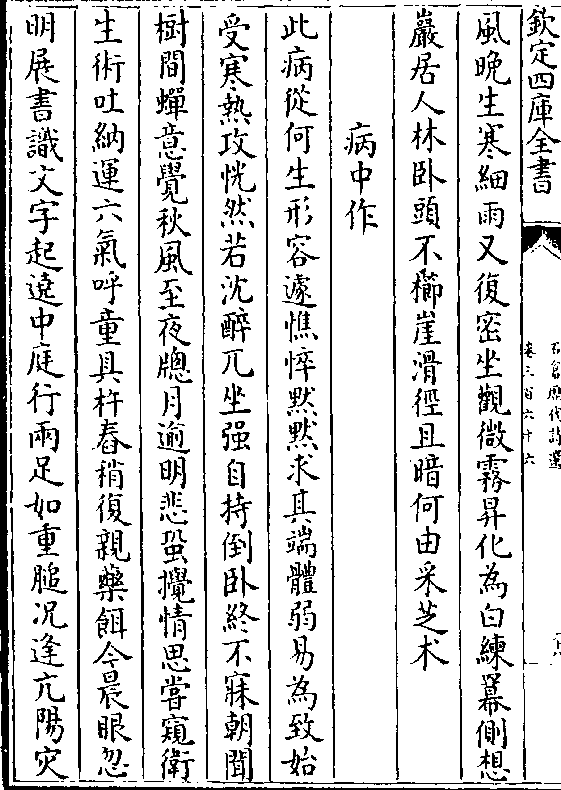 欽定四庫全書
石倉歷代詩選
卷三百六十六
風晚生寒細雨又復密坐觀微霧昇化為白練冪側想
巖居人林卧頭不櫛崖滑徑且暗何由采芝术
病中作
此病從何生形容遽憔悴默默求其端體弱易為致始
受寒熱攻恍然若沈醉兀坐强自持倒卧終不寐朝聞
樹間蟬意覺秋風至夜牎月逾明悲蛩攪情思嘗窺衛
生術吐納運六氣呼童具杵舂稍復親藥餌今晨眼忽
明展書識文字起遶中庭行兩足如重膇况逢亢陽灾